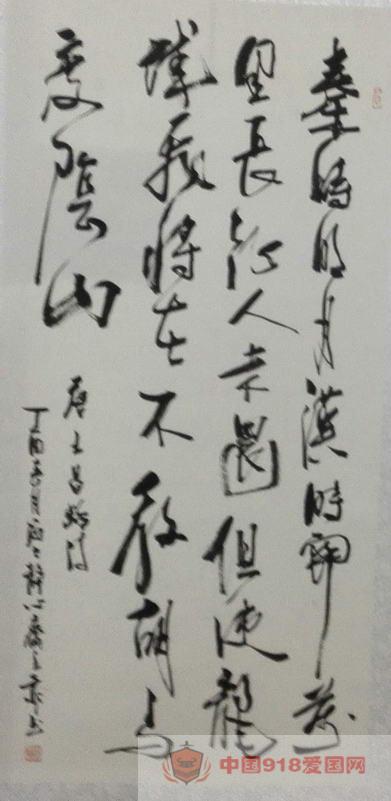 秦時明月漢時關萬
里長征人未還但使龍
城飛將在不教胡馬
度陰山
唐王昌齡詩
丁酉春月靜心齋
中国918爱国网